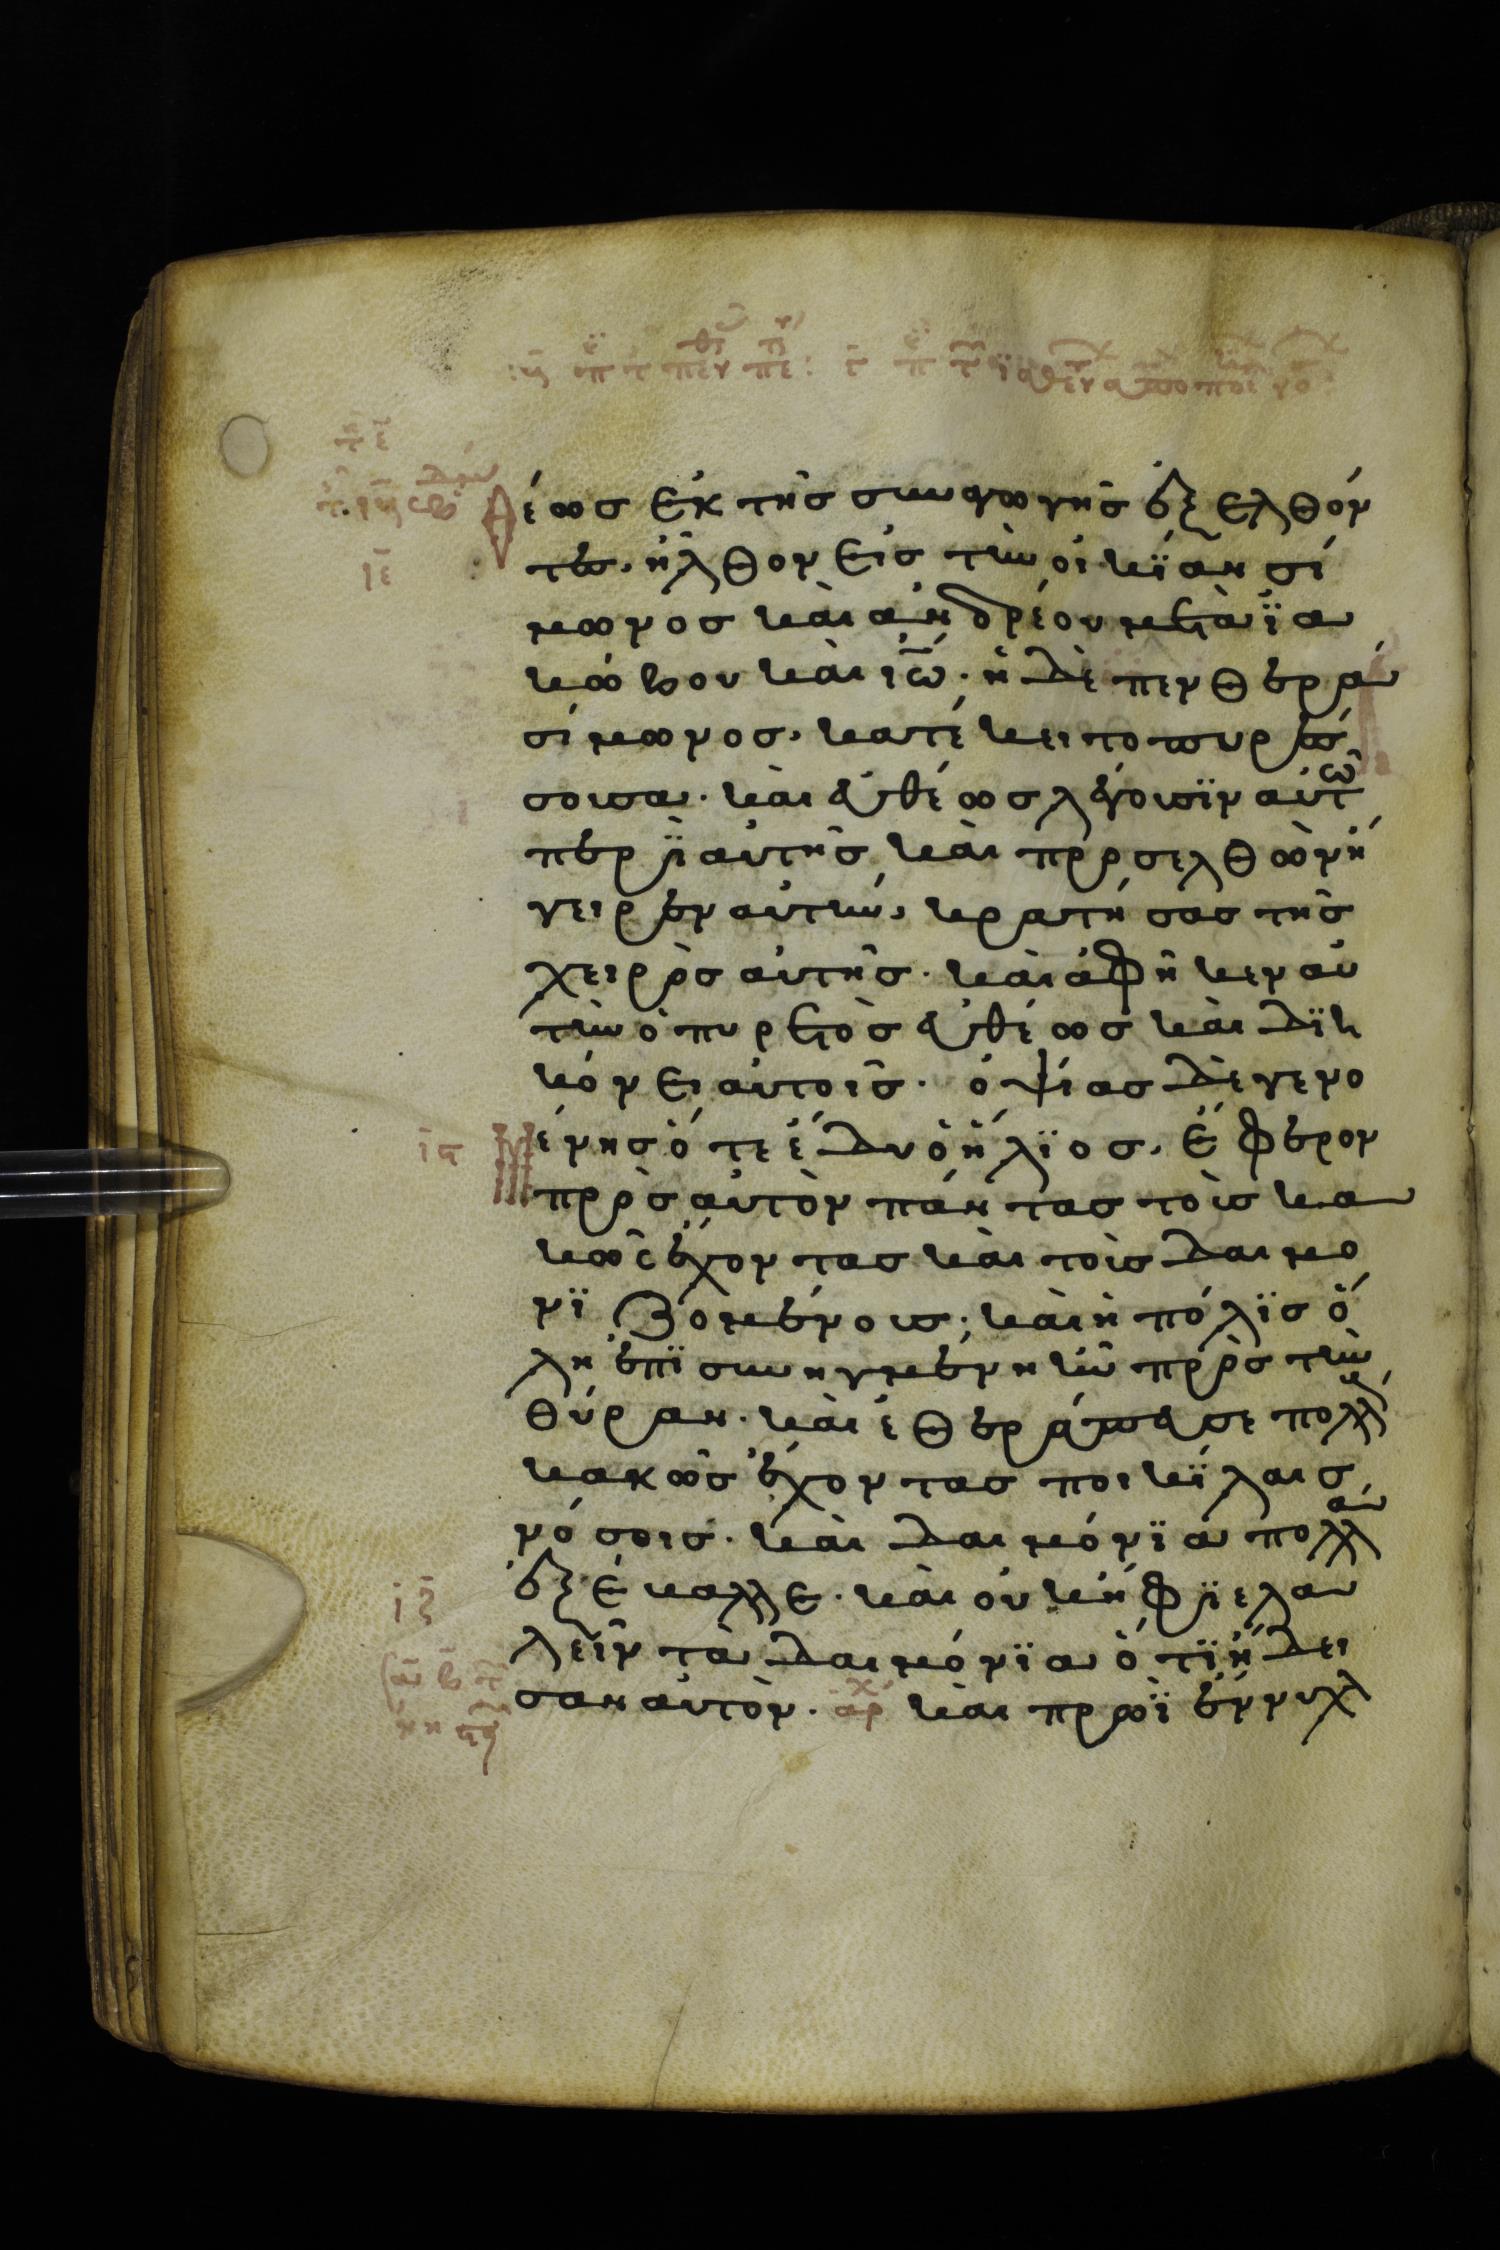 θέως ἐκ τῆς συναγωγῆς ἐξελθόν
τες, ἦλθον εἰς τὴν οἰκΐαν σί
μωνος καὶ ἀνδρέου μετὰ ϊα
κώβου καὶ ιω̅· ἡ δὲ πενθερὰ
σίμωνος, κατέκειτο πυρέσ
σουσα· καὶ εὐθέως λέγουσϊν αὐτῶ
περῒ αὐτῆς, καὶ προσελθὼν ἤ
γειρεν αὐτὴν, κρατήσας τῆς
χειρὸς αὐτῆς· καὶ ἀφῆκεν αὐ
τὴν ὁ πυρετὸς εὐθέως καὶ δϊη
κόνει αὐτοῖς· ὀψίας δὲ γενο
μένης ὅτε ἔδυ ὁ ἥλϊος, ἔφερον
πρὸς αὐτὸν πάντας τοὺς κα
κῶς ἔχοντας καὶ τοὺς δαιμο
νϊζομένους· καὶ ἡ πόλϊς ὅ
λη ἐπϊσυνηγμένη ἦν πρὸς τὴν
θύραν· καὶ ἐθεράπευσε πολλοὺς
κακῶς ἔχοντας ποικΐλαις
νόσοις· καὶ δαιμόνϊα πολλὰ
ἐξέβαλλε· καὶ οὐκ ἤφϊε λα
λεῖν τὰ δαιμόνϊα ὅτϊ ᾔδει
σαν αὐτόν· ἀρχ καὶ πρωῒ ἔννυχ
ιε
ις
ιζ